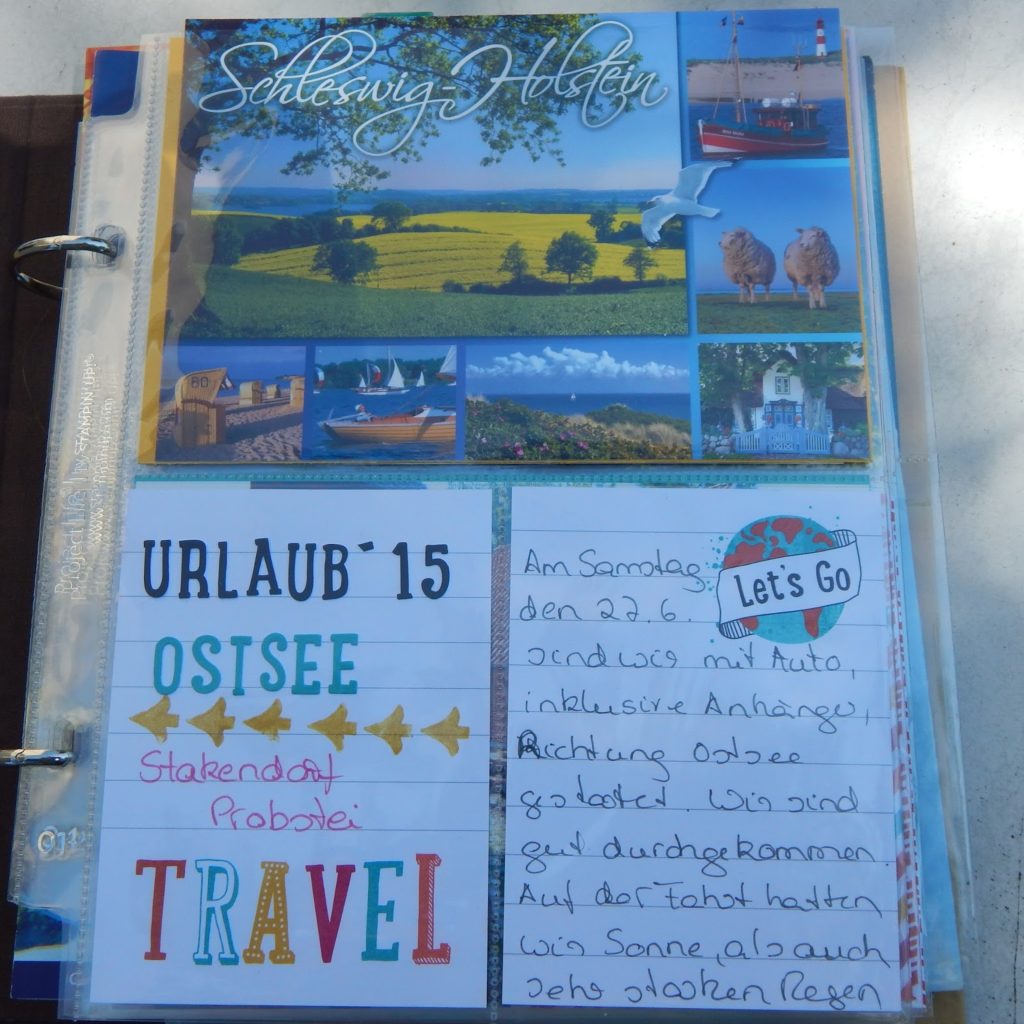 Schleswig-Holstein
60
Project Life | by STAMPIN' UP!®
URLAUB´15
OSTSEE
Stakendorf
Probstei
TRAVEL
Let's Go
Am Samstag
den 27.6.
sind wir mit Auto,
inklusive Anhänger,
Richtung Ostsee
gestartet. Wir sind
gut durchgekommen.
Auf der Fahrt hatten
wir Sonne, als auch
sehr starken Regen